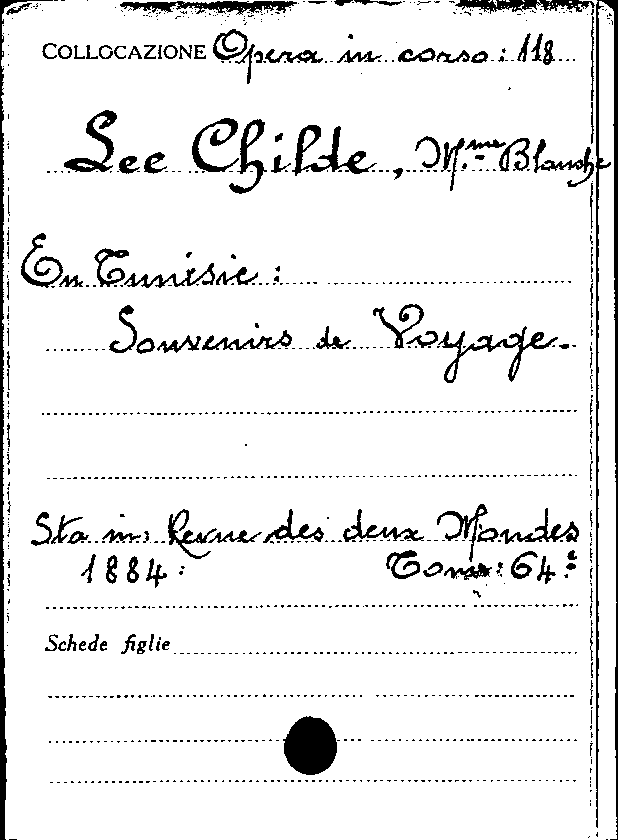 COLLOCAZIONE Opera in corso: 118
Lee Childe, Mme Blanche
En Tunisie:
Souvenirs de Voyage.
Sta in: Revue des deux Mondes
1884: Tome: 64e
Schede figlie